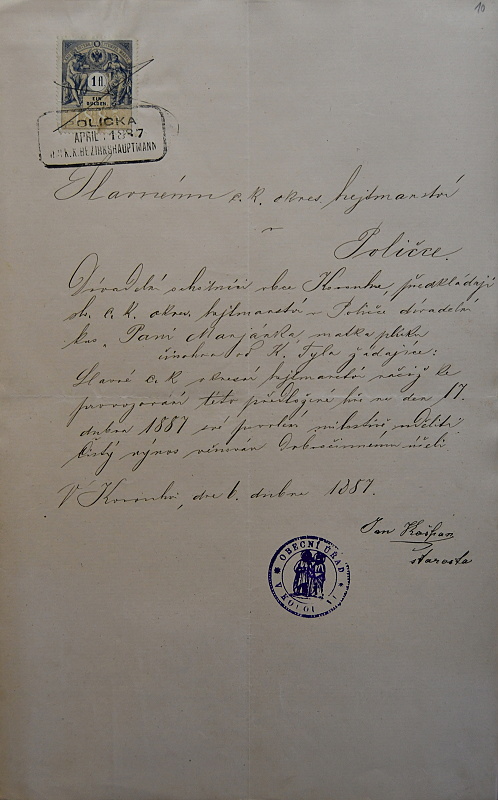 10
1 fl
EIN
GULDEN
POLICKA
APRIL 1887
K.K. BEZIRKSHAUPTMANN
Slavnému c. k. okres. hejtmanství
v
Poličce.
Divadelní ochotníci obce Korouhve, předkládají
sl. c. k. okres. hejtmanství v Poličce divadelní
kus „Paní Marjánka, matka pluku
činohra od K. Tyla žádajíce:
Slavné c. k. okresní hejtmanství račiž ku
provozování této předložené hře na den 17.
dubna 1887 své povolení milostivě uděliti
Čistý výnos věnován dobročinnému účeli.
V Korouhvi, dne 6. dubna 1887.
Jan Kašpar
starosta
OBECNÍ ÚŘAD
V KOROUHVI